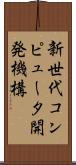 新世代コン
ピュータ開
発機構